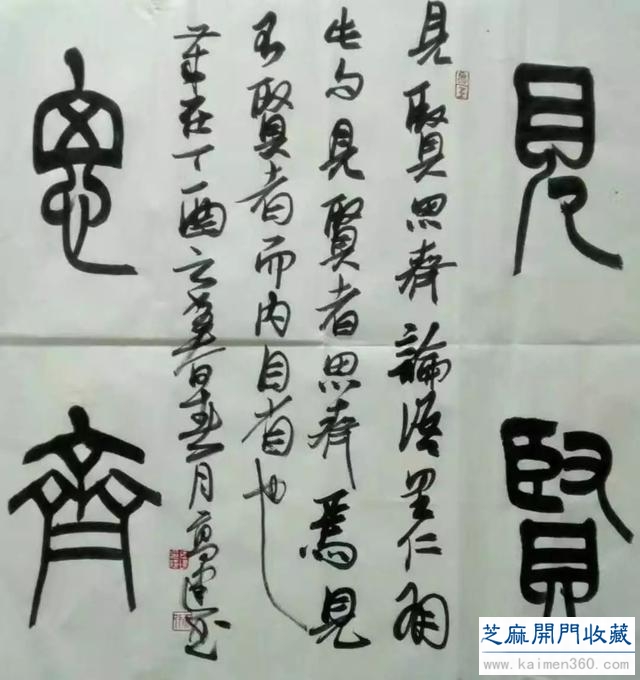 見賢
見賢思齊論語里仁
句見賢者思齊焉見
不賢者而内自省也
在丁酉之春月高
思齊
芝麻開門收藏
www.kaimen360.com